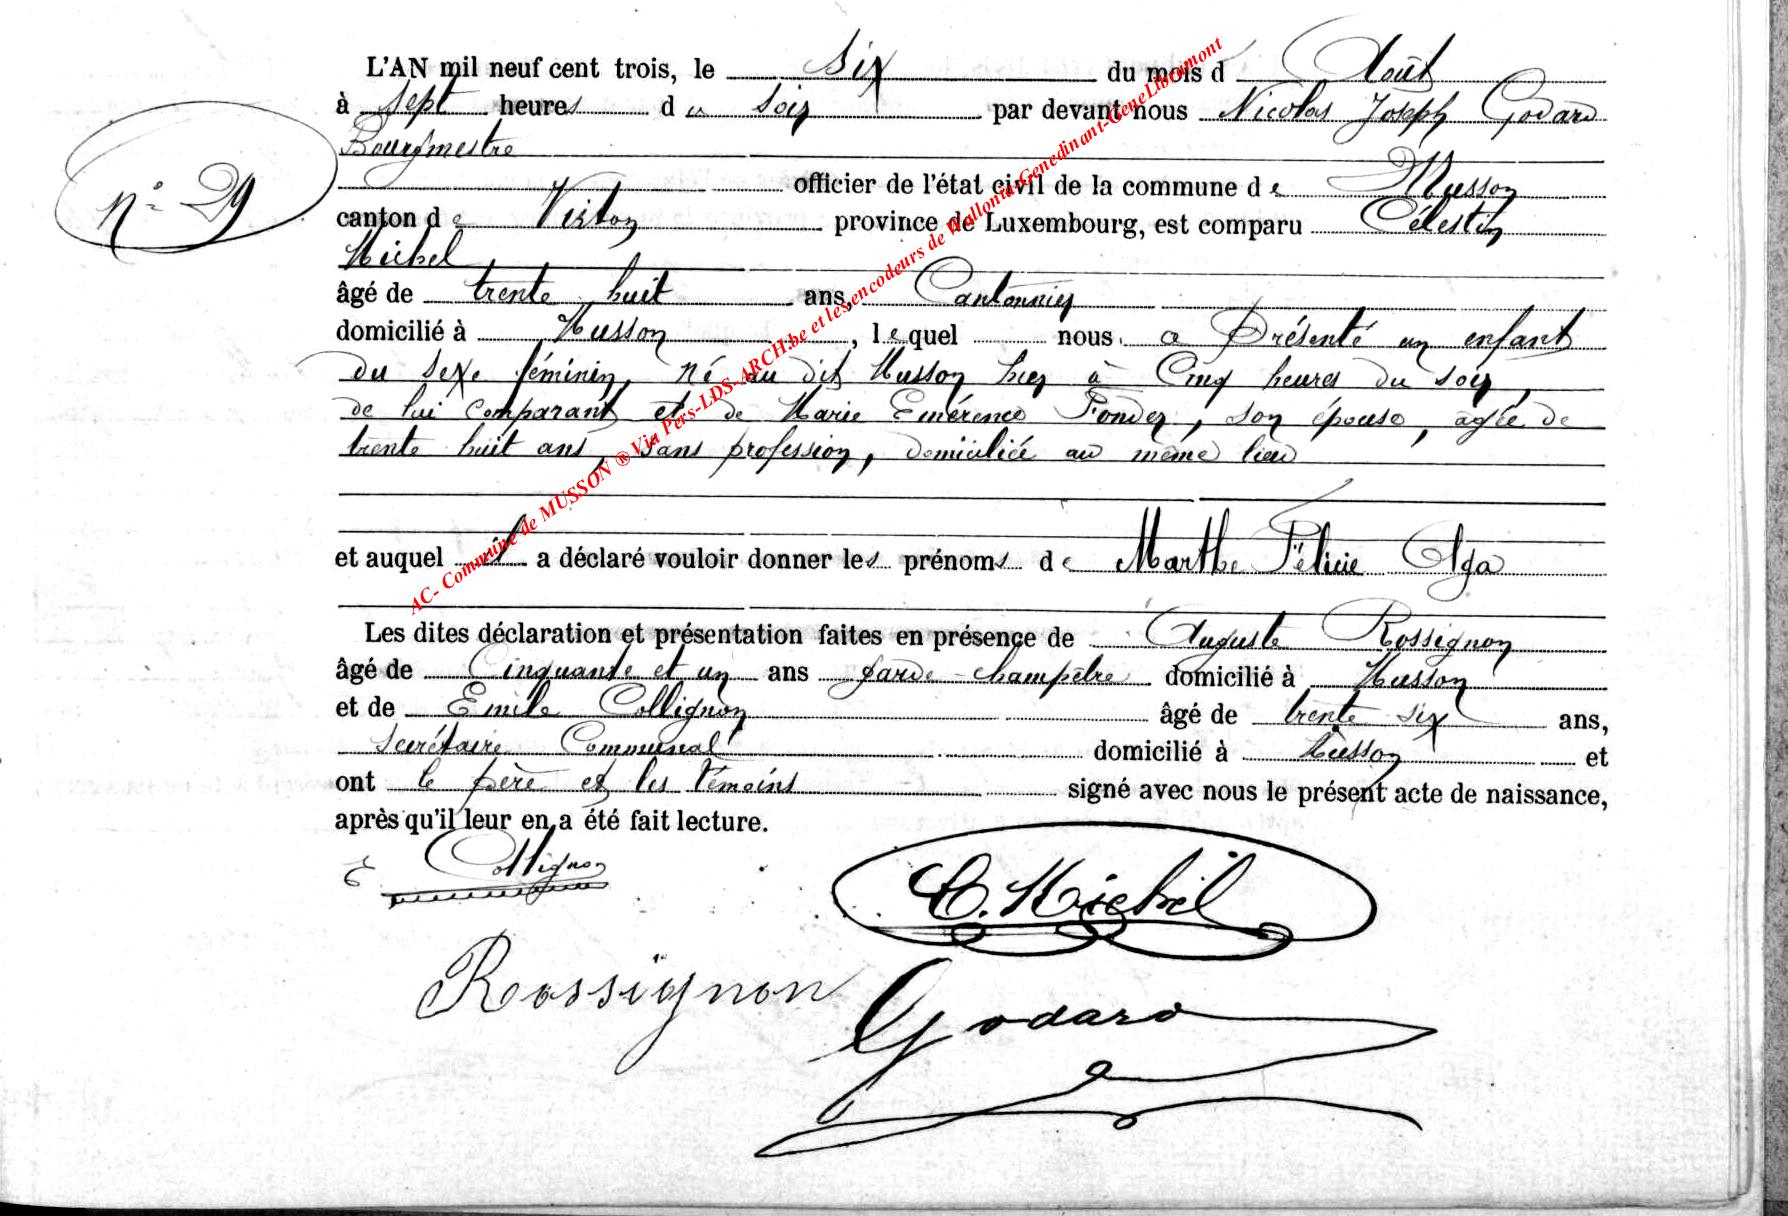 L'AN mil neuf cent trois, le six du mois d Août
à sept heures du soir par devant nous Nicolas Joseph Godard
Bourgmestre
officier de l'état civil de la commune de Musson
canton de Virton province de Luxembourg, est comparu Célestin
Michel
âgé de trente huit ans, Cantonnier
domicilié à Musson, lequel nous a présenté un enfant
du sexe féminin, né au dit Musson hier à Cinq heures du soir,
de lui comparant et de Marie Emérence Fonder, son épouse, agée de
trente huit ans, sans profession, domiciliée au même lieu
et auquel il a déclaré vouloir donner les prénoms de Marthe Félicie Olga
Les dites déclaration et présentation faites en présence de Auguste Rossignon
âgé de Cinquante et un ans garde-champêtre domicilié à Musson
et de Emile Collignon âgé de trente six ans,
Secrétaire Communal domicilié à Musson et
ont le père et les témoins signé avec nous le présent acte de naissance,
après qu'il leur en a été fait lecture.
n° 29
E Collignon
C. Michel
Rossignon
Godard
AC- Commune de MUSSON ® Via Pers-LDS-ARCH.be et les encodeurs de Wallonia-Genedinant-GeneLibramont